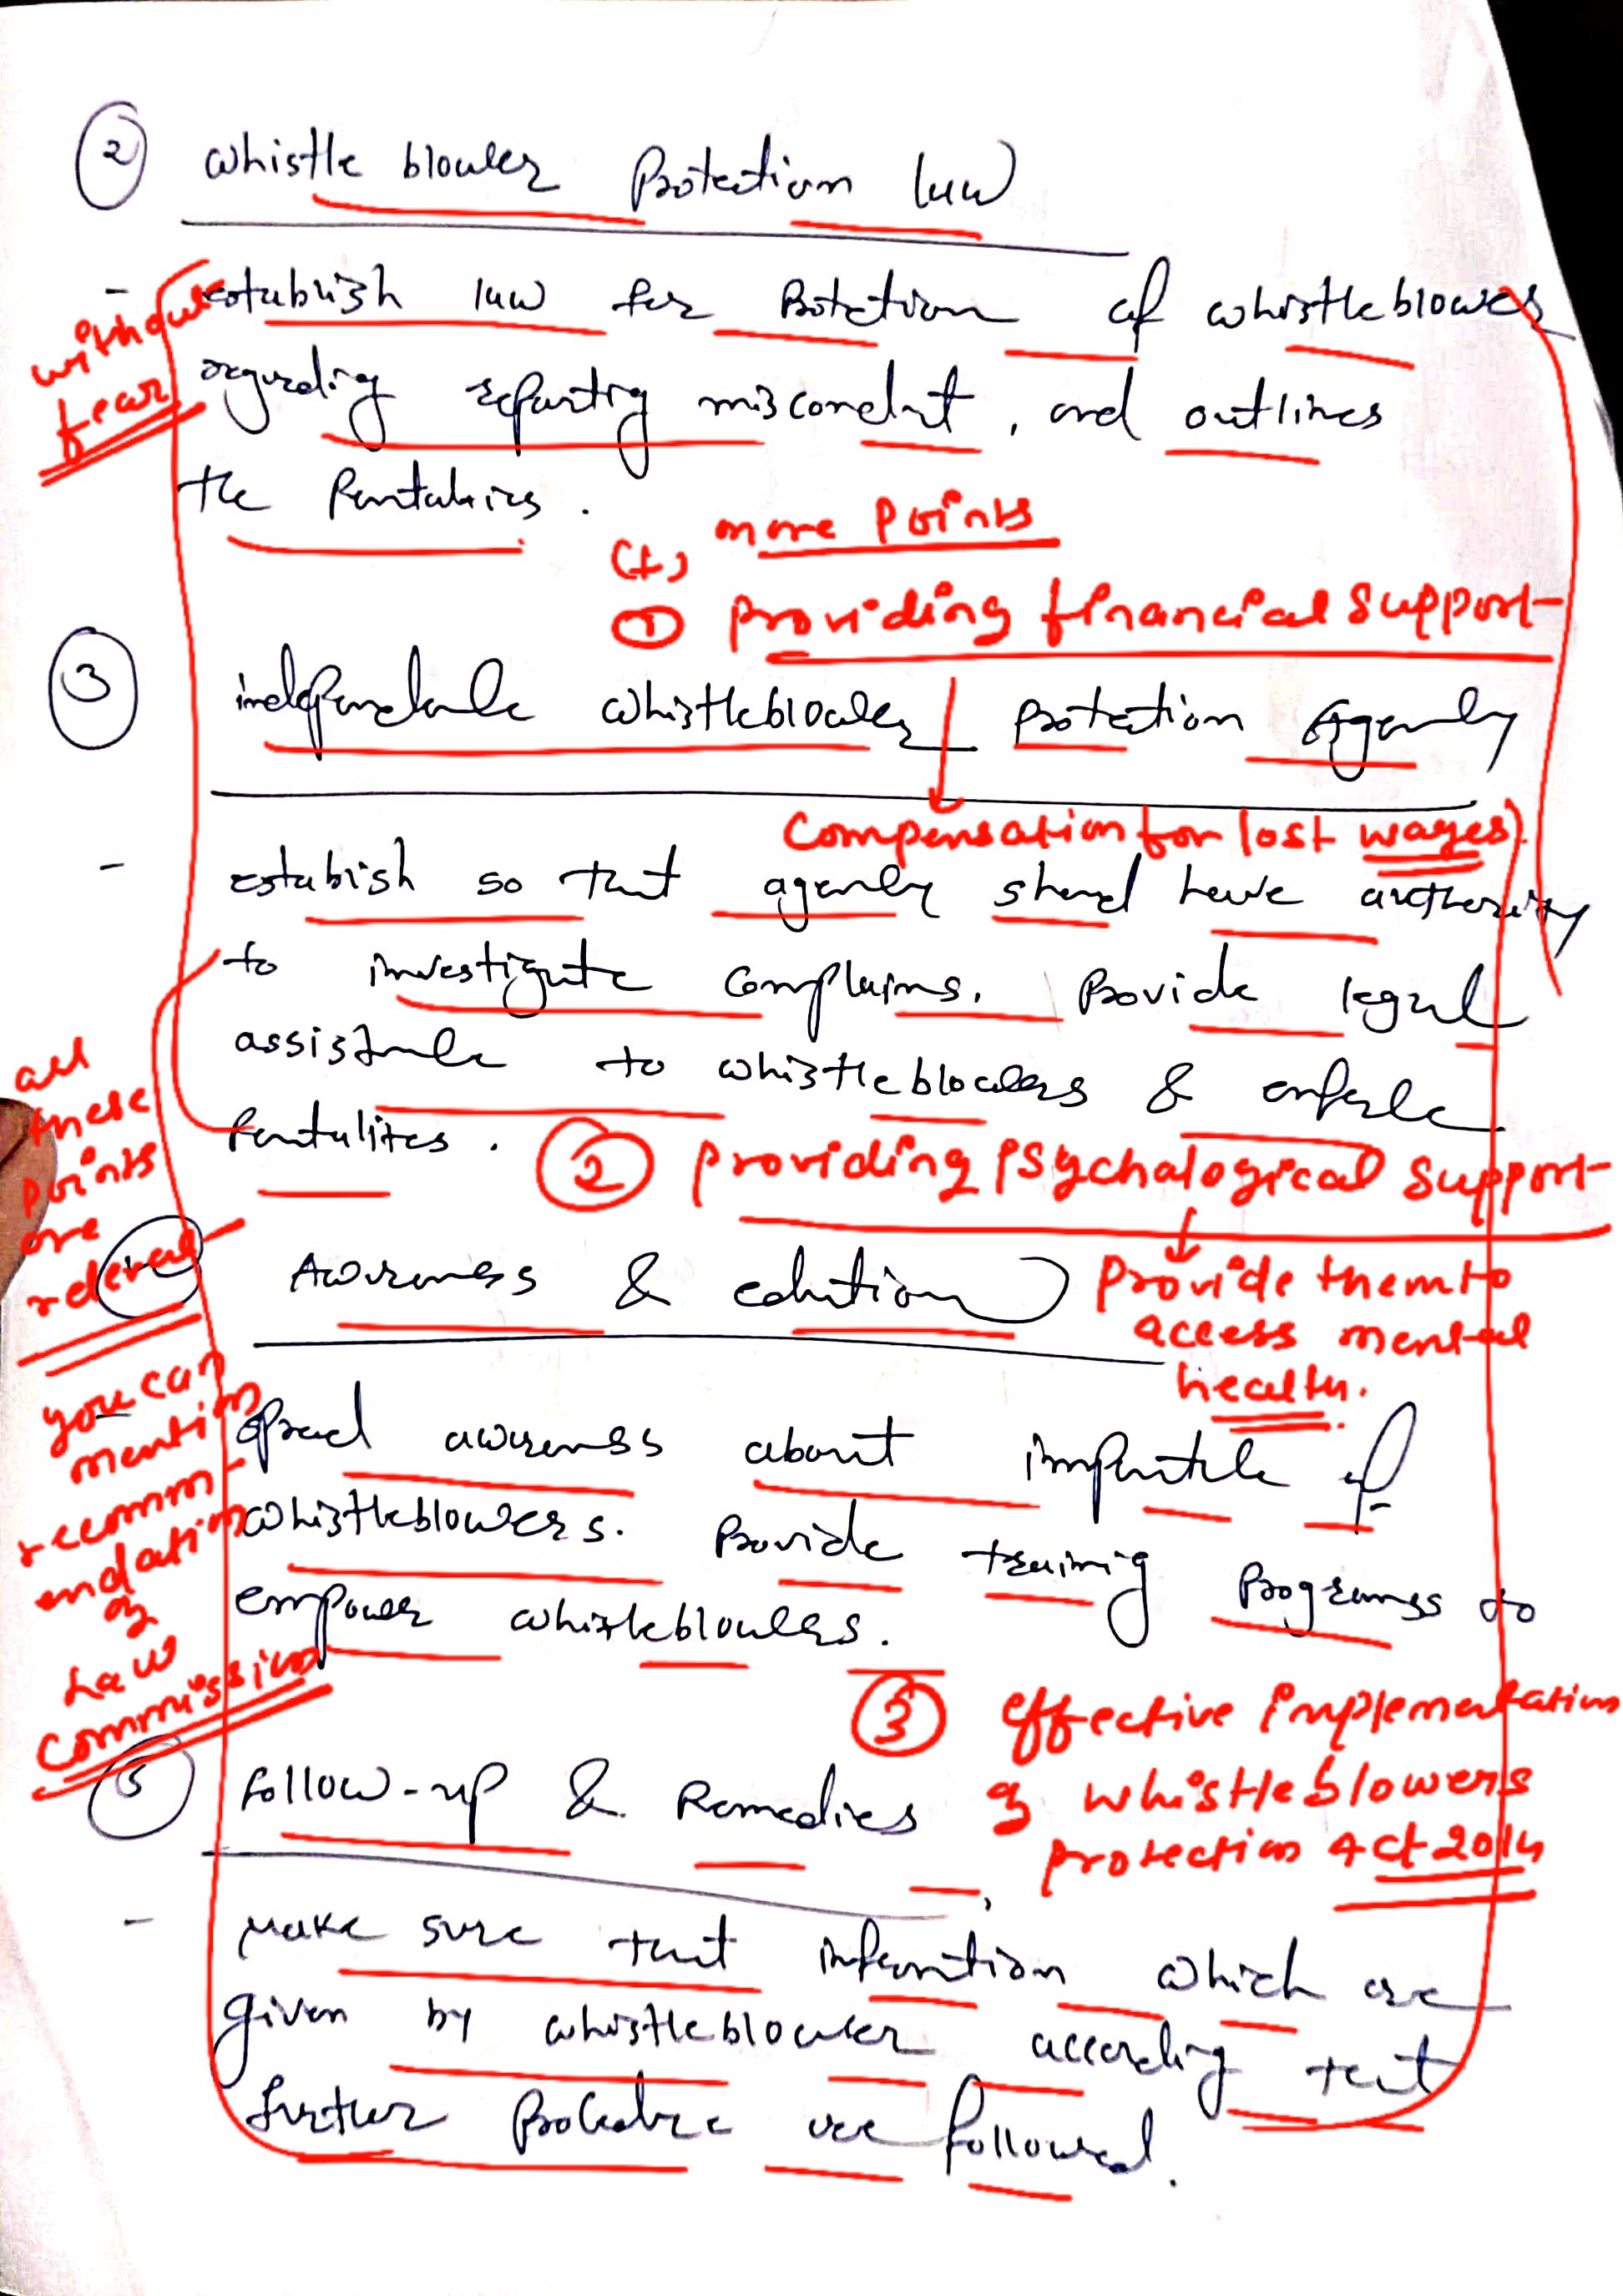 ② whistle blower Protection law
- establish law for Protection of whistleblower
without fear
regarding reporting misconduct, and outlines
the Pentalties.
(+) more points
① providing financial support
③ independent whistleblower Protection Agency
Compensation for lost wages).
- establish so that agency should have authority
to investigate complains. Provide legal
assistance to whistleblowers & enforce
Pentalites.
② providing psychalogical support
all these points are releval
④ Awareness & eduction
provide them to
access mental
health.
you can mention recomm-endation of Law commission
- spread awareness about importance of
whistleblowers. Provide training Programs to
empower whistleblowers.
③ effective implementation
of whistleblowers
protection Act 2014
⑤ Follow-up & Remedies
- make sure that information which are
given by whistleblower according that
further procedure are followed.